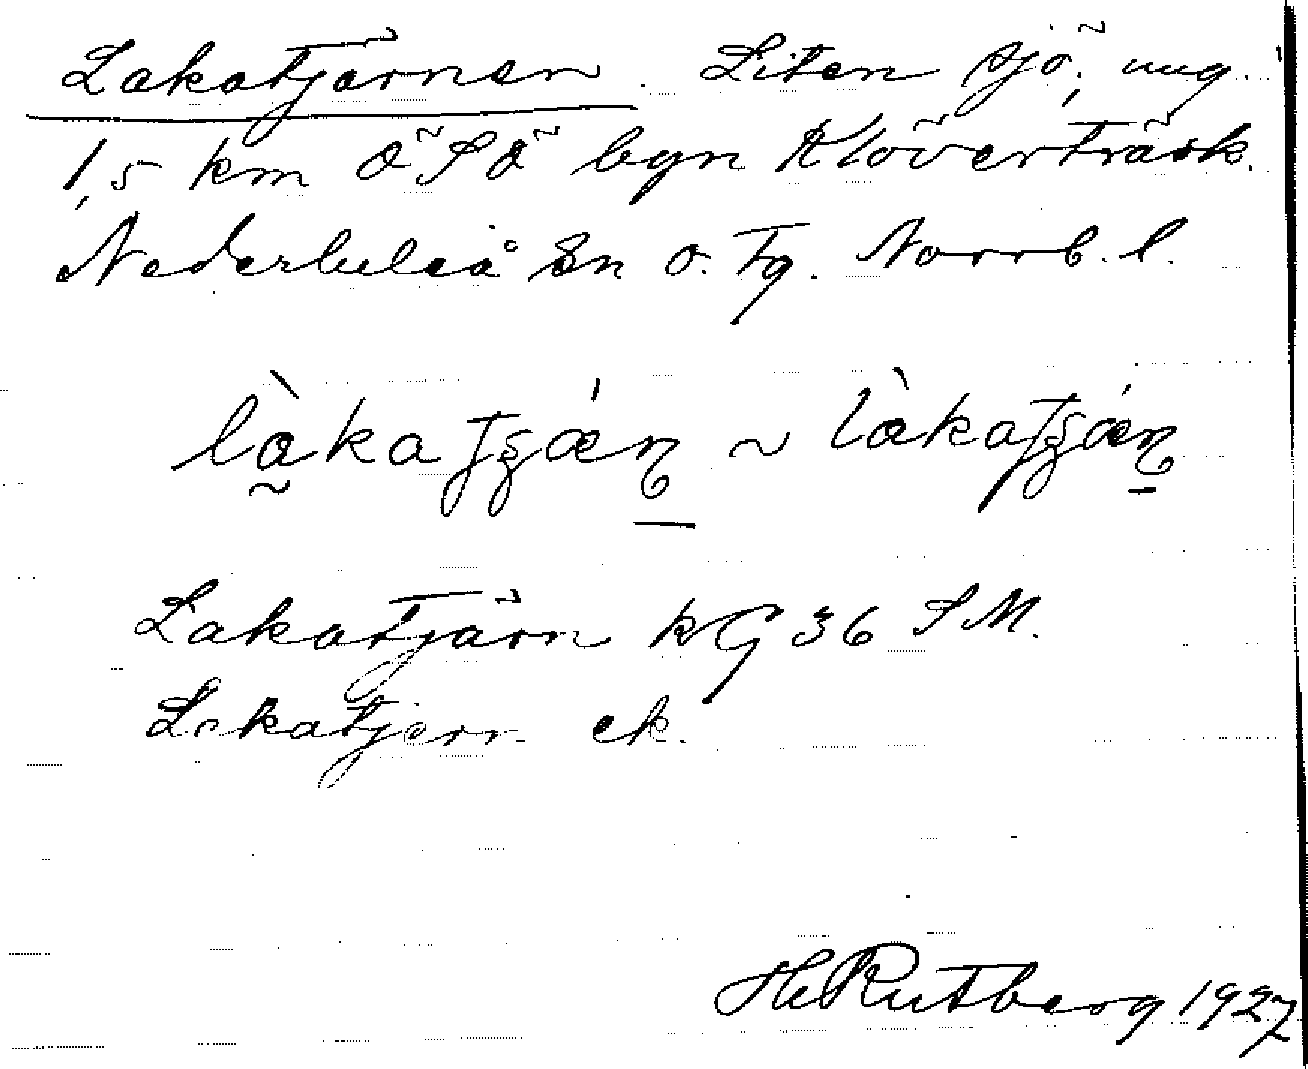 Lakatjärnen. Liten sjö, ung.
1,5 km ÖSÖ byn Klöverträsk.
Nederluleå sn o. tg. Norrb. l.
làkatʂǽn ~ làkatʂǽn
Lakatjärn kG 36 SM.
Lakatjern ek.
H Rutberg 1927